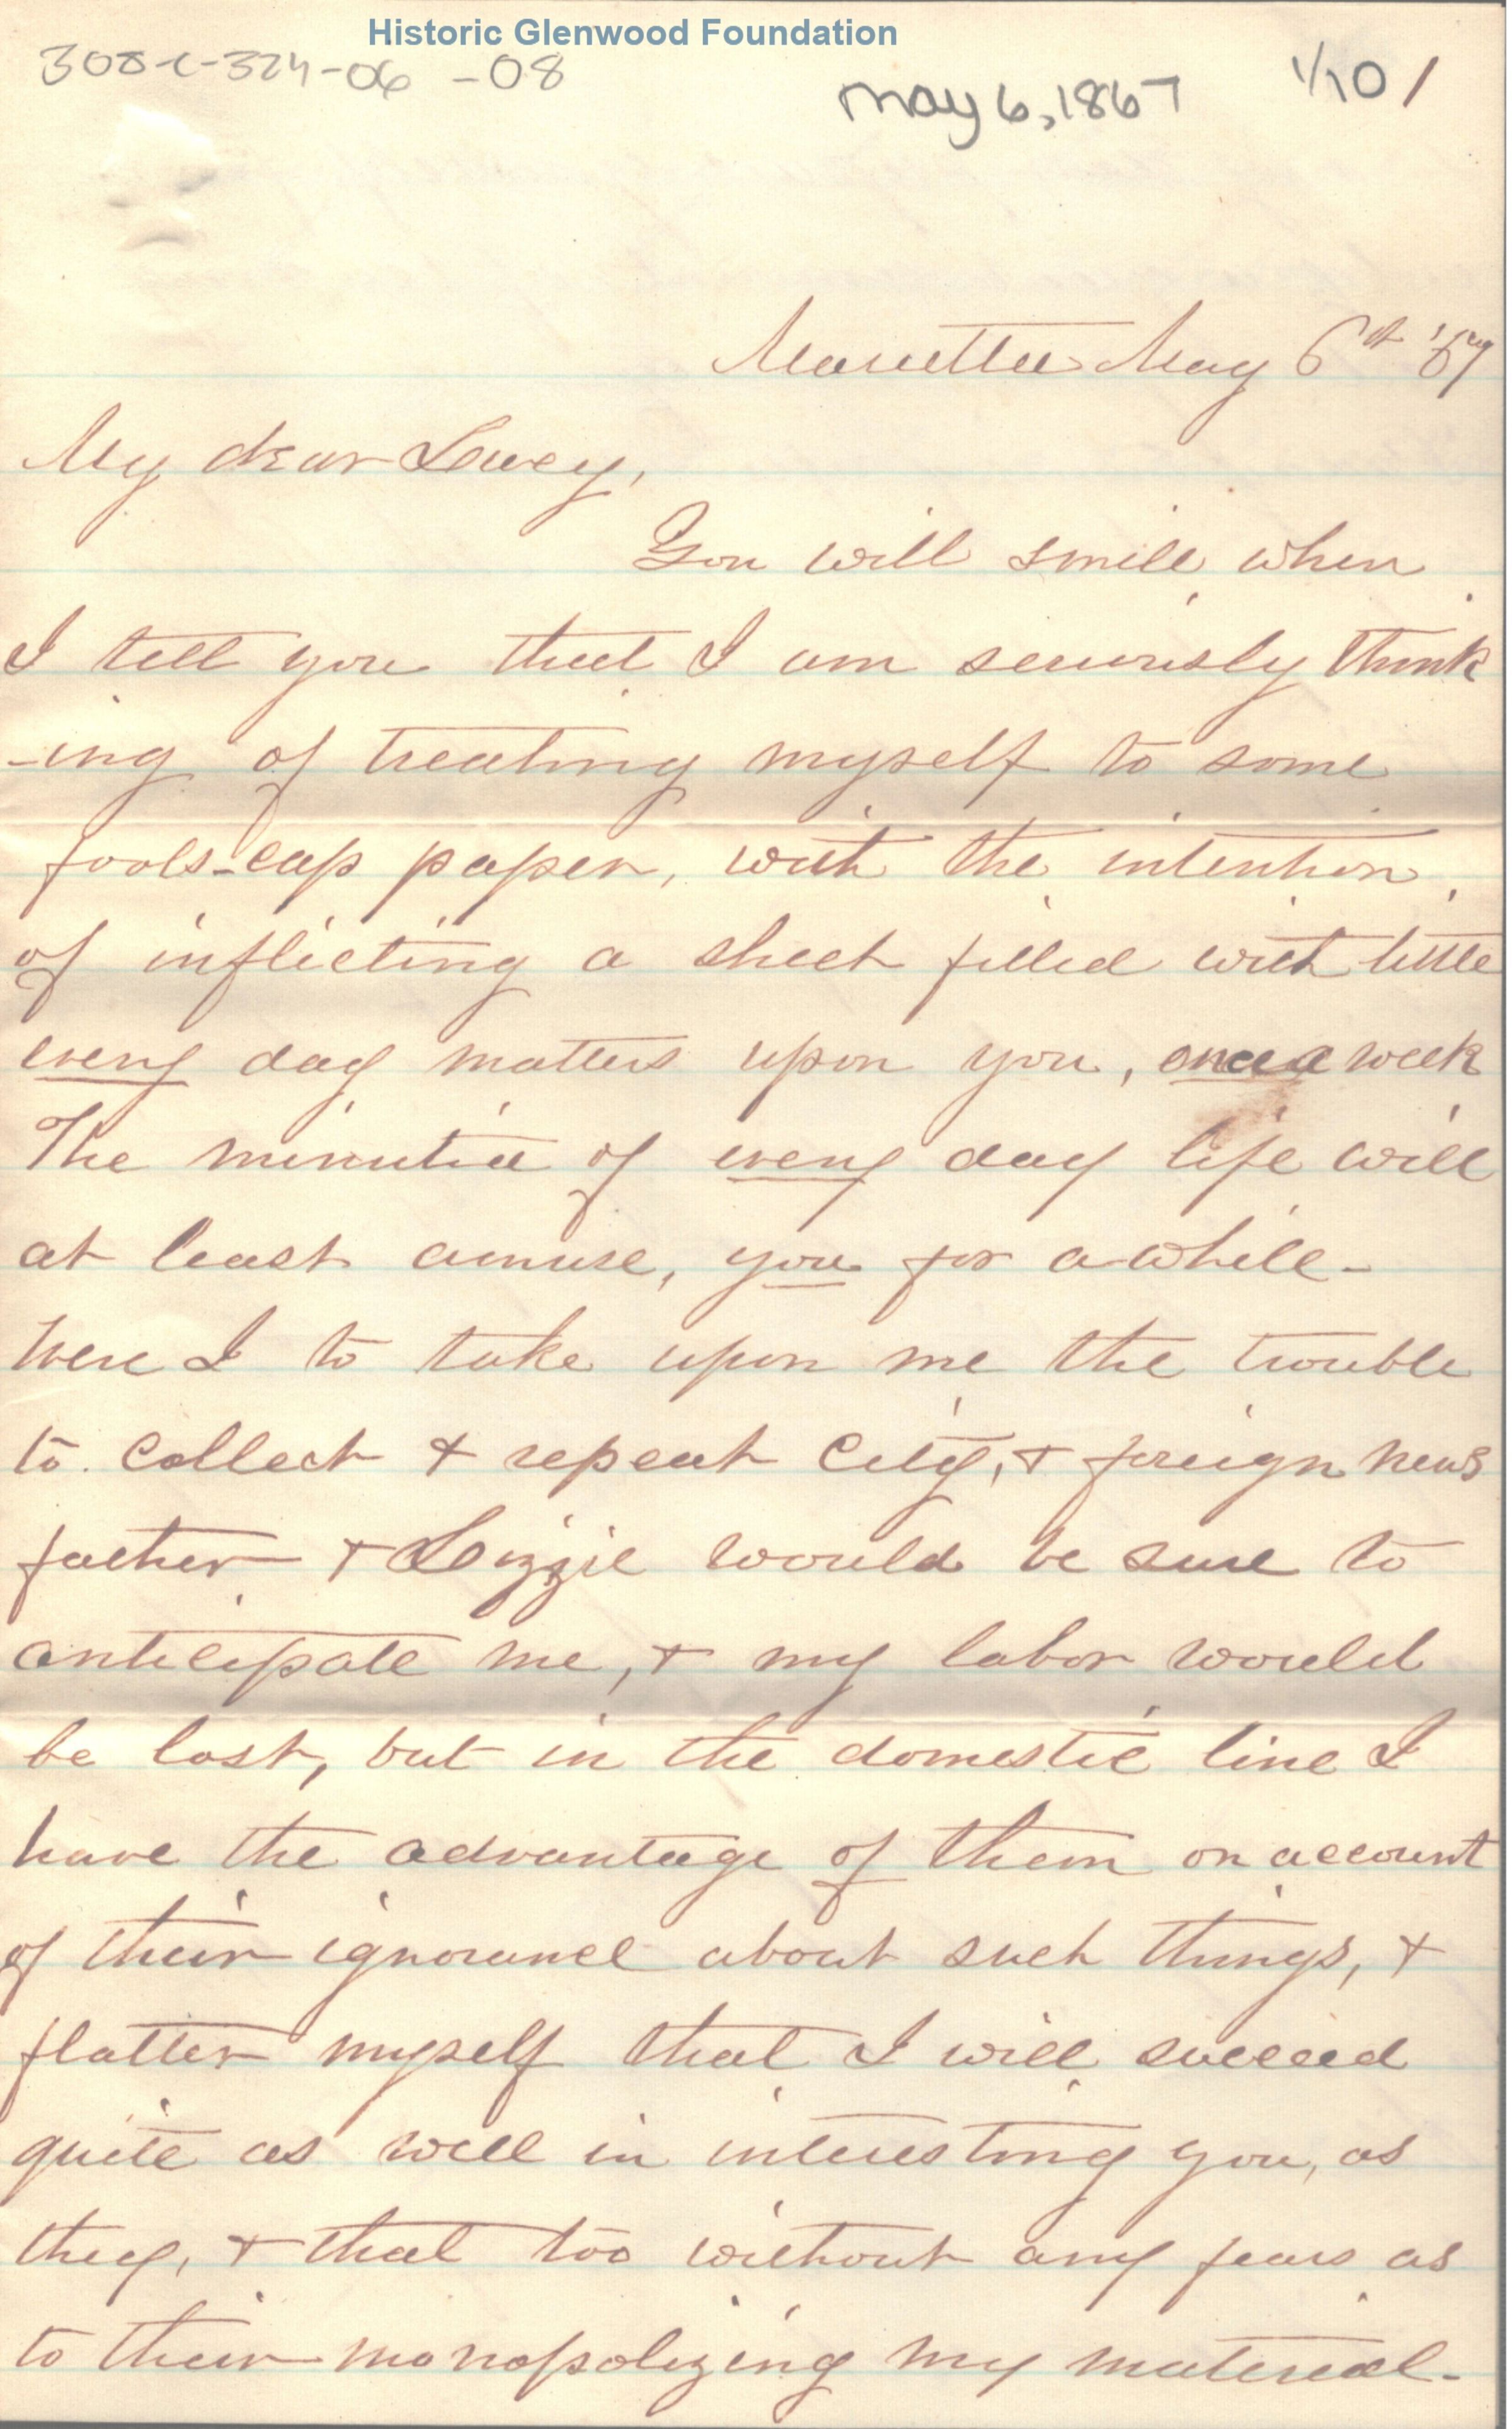 Historic Glenwood Foundation
308-c-324-06 -08
May 6, 1867
1/10 1
Marietta May 6th '67
My dear Lucy,
You will smile when
I tell you that I am seriously think
-ing of treating myself to some
fools-cap paper, with the intention
of inflicting a sheet filled with little
every day matters upon you, once a week
The minutia of every day life will
at least amuse, you for a while-
Were I to take upon me the trouble
to collect & repeat City, & foreign news
father & Lizzie would be sure to
anticipate me, & my labor would
be lost, but in the domestic line I
have the advantage of them on account
of their ignorance about such things, &
flatter myself that I will succeed
quite as well in interesting you, as
they, & that too without any fears as
to their monopolizing my material-